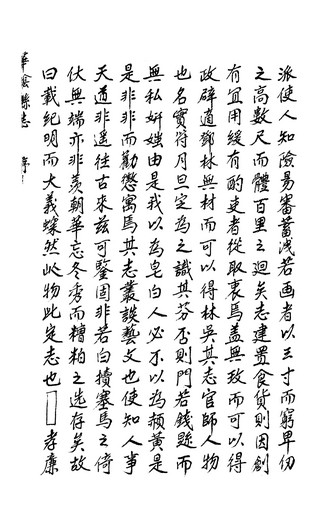 派使人知險易審蓄洩若画者以三寸而窮卑仞
之高數尺而體百里之迴矣志建置食貨則因創
有宜用緩有酌吏者從取衷焉蓋無致而可以得
政辟道鄧林無材而可以得林吳其志官師人物
也名實符月旦定為之識其芬否則門若錢題而
無私妍媸由是我以為皂白人必不以為頳黃是
是非非而勸懲寓焉其志叢談藝文也使知人事
天道非遥往古來兹可鑒固非若白犢塞馬之倚
伏無端亦非羡朝華忘冬秀而糟粕之迭存矣故
曰載紀明而大義燦然此物此定志也 孝廉
華陰縣志 序